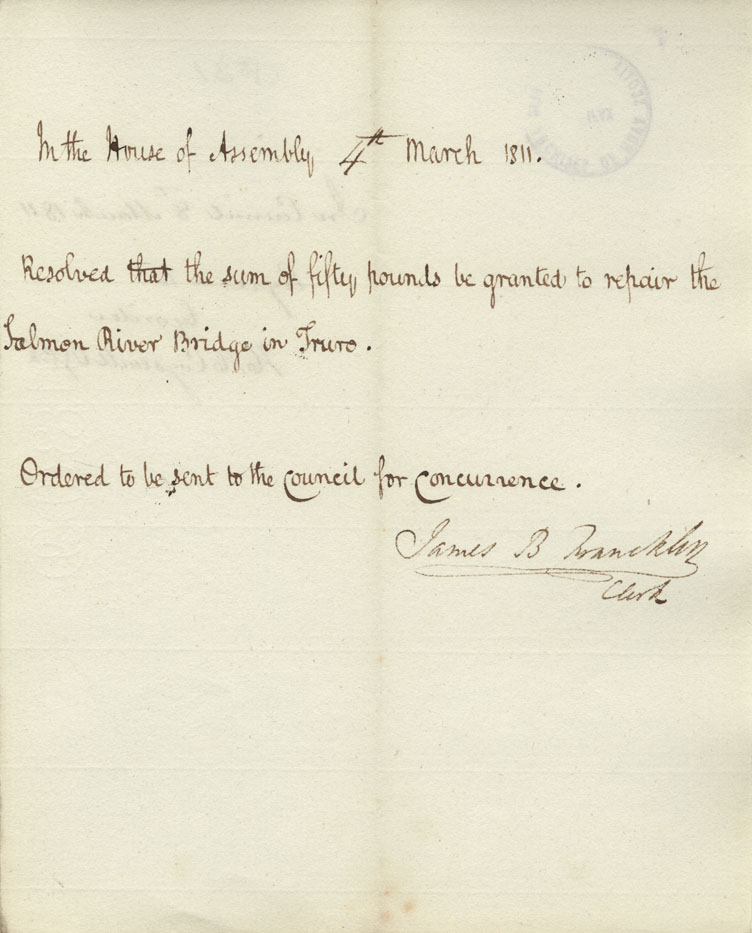 In the House of Assembly, 4th March 1811.
Resolved that the sum of fifty pounds be granted to repair the
Salmon River Bridge in Truro.
Ordered to be sent to the Council for Concurrence.
James B Francklin
Clerk